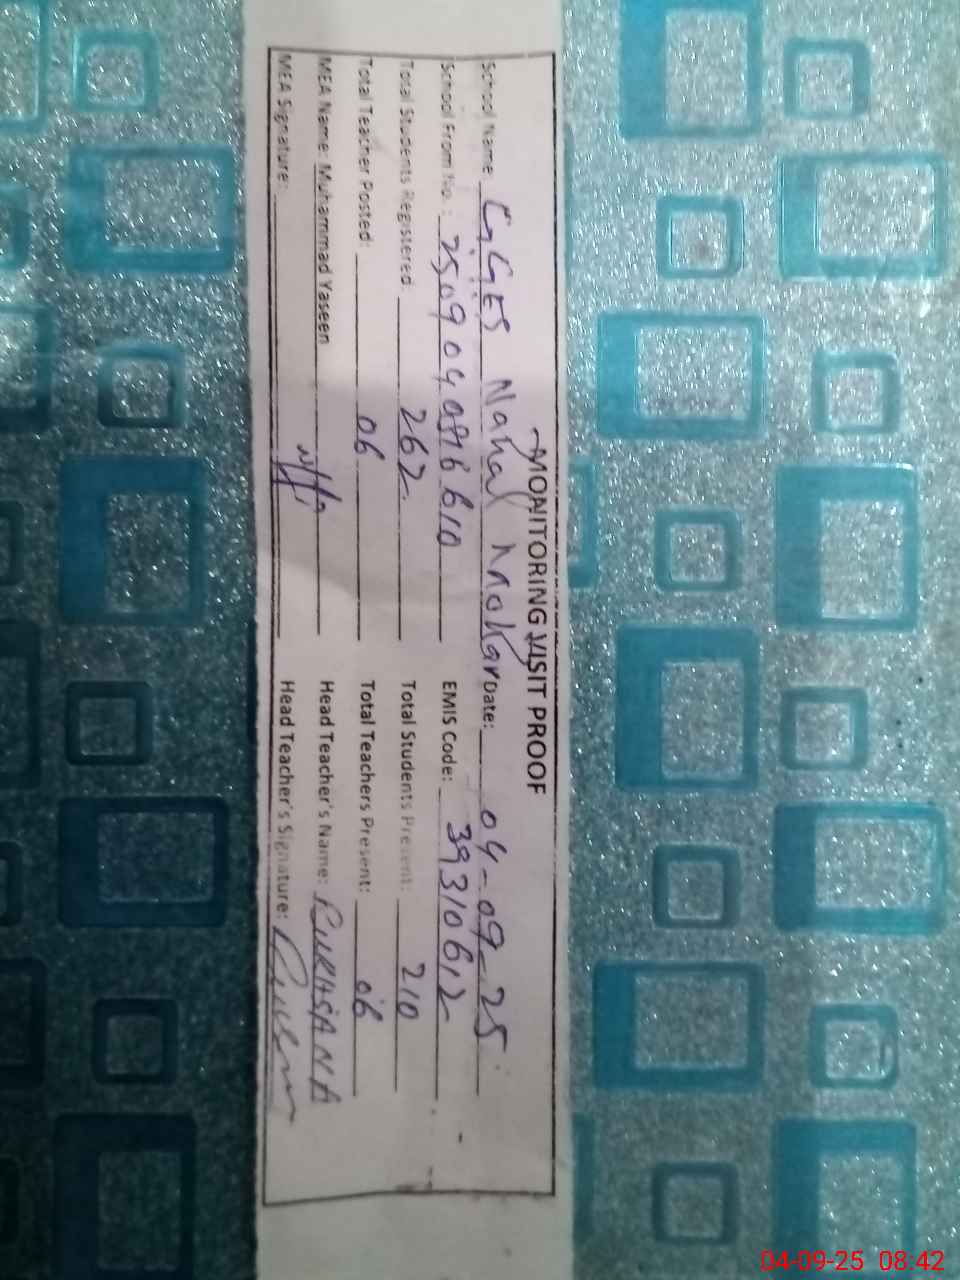 MONITORING VISIT PROOF
School Name GGES Nahal Date: 04-09-25
School From No.: EMIS Code: 39310612
Total Students Registered: 262 Total Students Present: 210
Total Teacher Posted: 06 Total Teachers Present: 06
MEA Name: Muhammad Yaseen Head Teacher's Name: RUKHSANA
MEA Signature: Head Teacher's Signature:
04-09-25 08:42